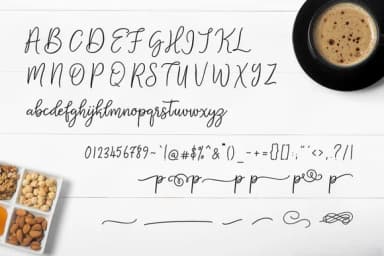 A B C D E F G H I J K L
M N O P Q R S T U V W X Y Z
abcdefghijklmnopqrstuvwxyz
0123456789~`!@#$%^&*()_-+={}[]:;"'<>,.?/|
p p p p p p